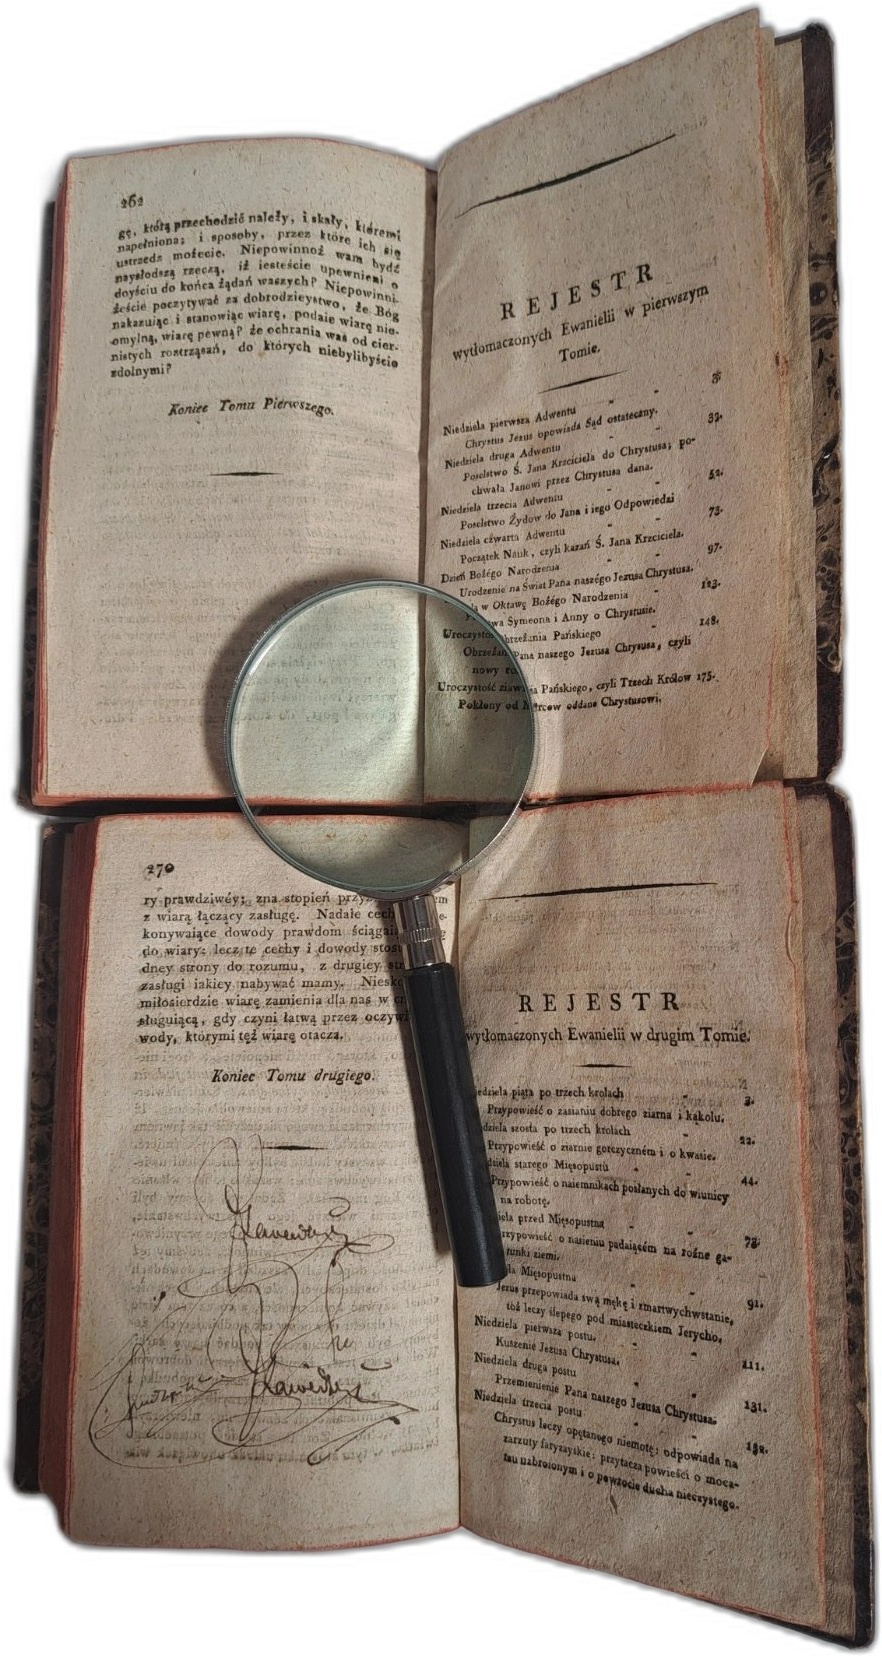 262
gę, którą przechodzić należy, i skały, któremi
napełniona; i sposoby, przez które ich się
ustrzedz możecie. Niepowinnoż wam bydź
naysłodszą rzeczą, iż iesteście upewnieni o
doyściu do końca żądań waszych? Niepowinni-
żeście poczytywać za dobrodzieystwo, że Bóg
nakazuiąc i stanowiąc wiarę, podaie wiarę nie-
omylną, wiarę pewną? że ochrania was od cier-
nistych roztrząsań, do których niebylibyście
zdolnymi?
Koniec Tomu Pierwszego.
REJESTR
wytłomaczonych Ewanielii w pierwszym
Tomie.
Niedziela pierwsza Adwentu - - 3.
Chrystus Jezus opowiada Sąd ostateczny.
Niedziela druga Adwentu - - 32.
Poselstwo Ś. Jana Krzciciela do Chrystusa; po-
chwała Janowi przez Chrystusa dana.
Niedziela trzecia Adwentu - - 52.
Poselstwo Żydow do Jana i iego Odpowiedzi
Niedziela czwarta Adwentu - - 73.
Początek Nauk, czyli kazań Ś. Jana Krzciciela.
Dzień Bożégo Narodzenia - - 97.
Urodzenie na Świat Pana naszégo Jezusa Chrystusa.
w Oktawę Bożégo Narodzenia - 123.
Symeona i Anny o Chrystusie.
Pańskiego - 148.
Pana naszego Jezusa Chrystusa, czyli
nowy
Uroczystość Pańskiego, czyli Trzech Królow 175.
Pokłony od oddane Chrystusowi.
270
ry prawdziwéy; zna stopień
z wiarą łączący zasługę. Nadałe
konywaiące dowody prawdom
do wiary: lecz te cechy i dowody
dney strony do rozumu, z drugiey
zasługi iakiey nabywać mamy.
miłosierdzie wiarę zamienia dla nas w
sługuiącą, gdy czyni łatwą przez
wody, którymi też wiarę otacza.
Koniec Tomu drugiego.
REJESTR
wytłomaczonych Ewanielii w drugim Tomie.
piąta po trzech krolach - 3.
Przypowieść o zasianiu dobrego ziarna i kąkolu.
szosta po trzech krolach - 22.
Przypowieść o ziarnie gorczyczném i o kwasie.
starego Mięsopustu - - 44.
Przypowieść o naiemnikach posłanych do winnicy
na robotę.
przed Mięsopustną - 72.
o nasieniu padaiącém na rożne ga-
tunki ziemi.
Mięsopustna - 91.
Jezus przepowiada swą mękę i zmartwychwstanie,
tóż leczy ślepego pod miasteczkiem Jerycho.
Niedziela pierwsza postu. - - 111.
Kuszenie Jezusa Chrystusa.
Niedziela druga postu - - 131.
Przemienienie Pana naszego Jezusa Chrystusa.
Niedziela trzecia postu - - 152.
Chrystus leczy opętanego niemotę; odpowiada na
zarzuty faryzayskie; przytacza powieści o moca-
rzu uzbroionym i o powrocie ducha nieczystego.